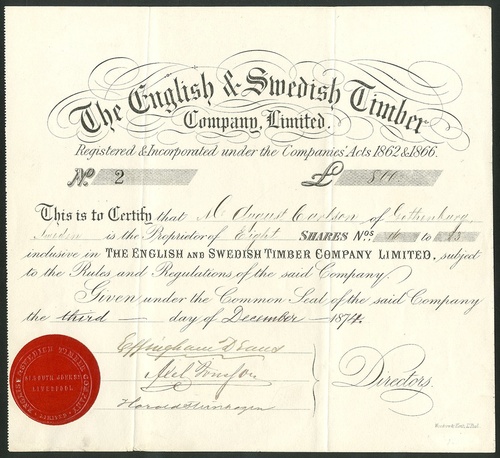 The English & Swedish Timber
Company, Limited.
Registered & Incorporated under the Companies' Acts 1862 & 1866.
No 2 £ 800
This is to Certify that Mr August Carlson of Gottenburg
Sweden is the Proprietor of Eight SHARES Nos. to
inclusive in THE ENGLISH AND SWEDISH TIMBER COMPANY LIMITED, subject
to the Rules and Regulations of the said Company.
Given under the Common Seal of the said Company
the third day of December 1874.
Effingham
Axel
Directors.
Harold
ENGLISH & SWEDISH TIMBER COMPANY
LIMITED
LIVERPOOL